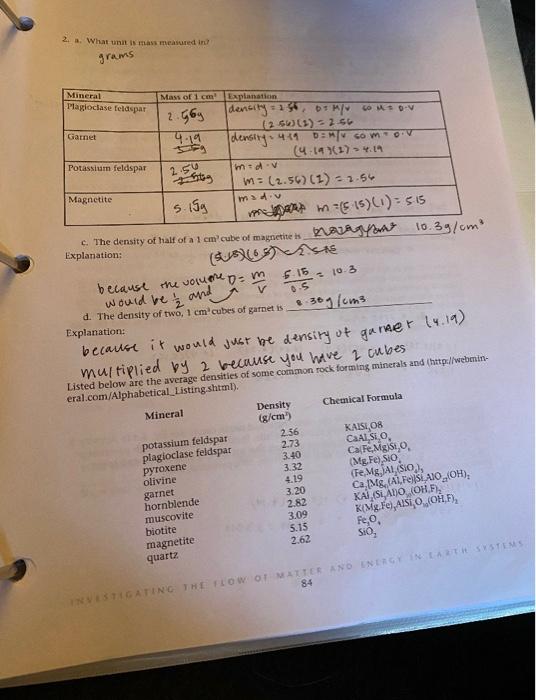 2. a. What unit is mass measured in?
grams
Mineral Mass of 1 cm³ Explanation
Plagioclase feldspar 2.56g density = 2.56, D = M/V so M = D·V
(2.56)(1) = 2.56
Garnet 4.19 density = 4.19 D = M/V so m = D·V
(4.19)(1) = 4.19
Potassium feldspar 2.56 m = d·v
m = (2.56)(1) = 2.56
Magnetite 5.15g m = d·v
m = (5.15)(1) = 5.15
c. The density of half of a 1 cm³ cube of magnetite is 10.3g/cm³
Explanation:
because the volume would be ½ and D = m/v 5.15/0.5 = 10.3
d. The density of two, 1 cm³ cubes of garnet is 8.38g/cm3
Explanation:
because it would just be density of garnet (4.19)
multiplied by 2 because you have 2 cubes
Listed below are the average densities of some common rock forming minerals and (http://webmin-
eral.com/Alphabetical_Listing.shtml).
Mineral Density (g/cm³) Chemical Formula
potassium feldspar 2.56 KAlSi,O8
plagioclase feldspar 2.73 CaAl,Si,O,
pyroxene 3.40 Ca(Fe,Mg)Si,O,
olivine 3.32 (Mg,Fe),SiO,
garnet 4.19 (Fe,Mg,)Al,(SiO,),
hornblende 3.20
muscovite 2.82 KAl,(Si,Al)O,,(OH,F),
biotite 3.09 K(Mg,Fe),AlSi,O,,(OH,F),
magnetite 5.15 Fe,O,
quartz 2.62 SiO₂
INVESTIGATING THE FLOW OF MATTER AND ENERGY IN EARTH SYSTEMS
84